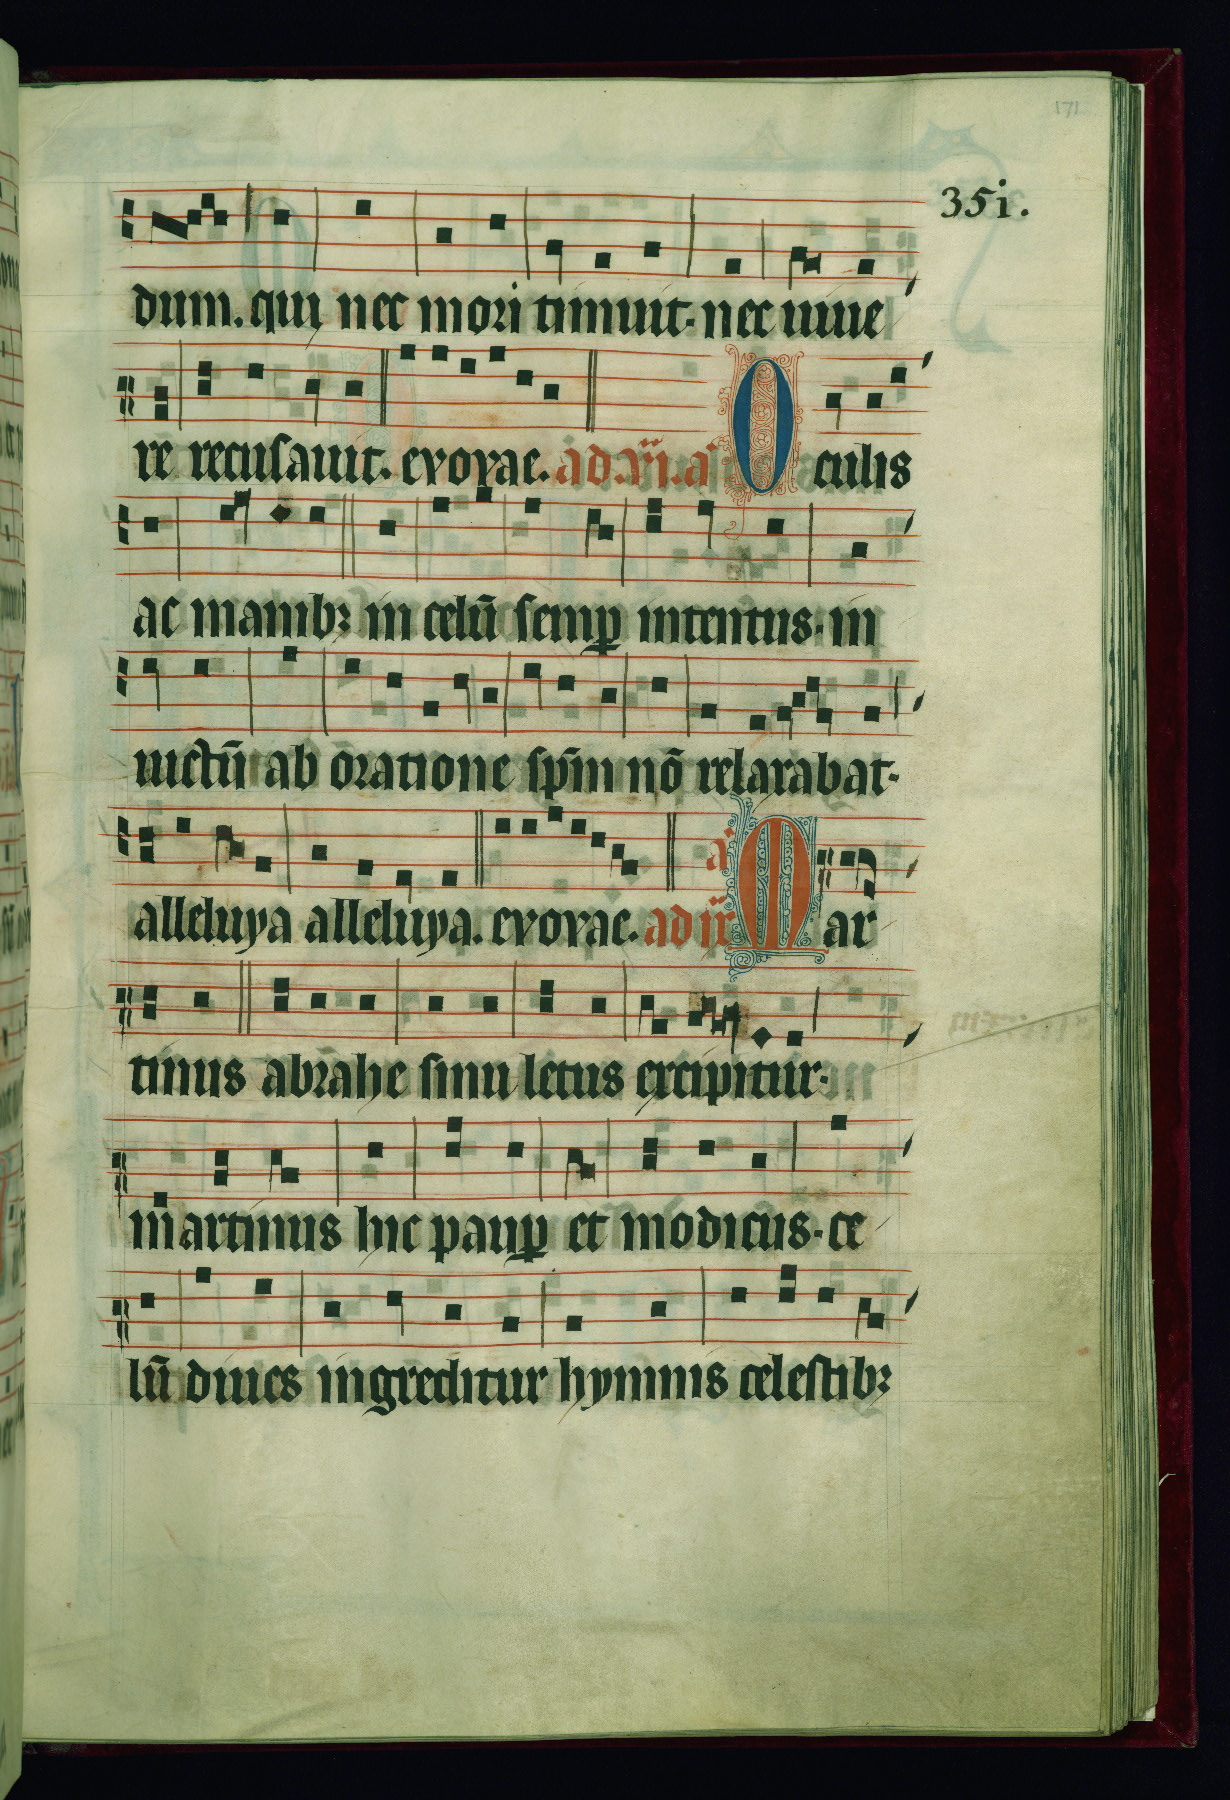 171
35i.
dum. qui nec mori timuit. nec uiue
rē recusauit. evovae. ad. vi. a Oculis
ac manibꝫ in celū semꝑ intentus. in
uictū ab oratione sp̄m nō relaxabat.
alleluya alleluya. evovae. ad ix a Mar
tinus abrahe sinu letus excipitur.
martinus hic pauꝑ et modicus. ce
lū diues ingreditur hymnis celestibꝫ